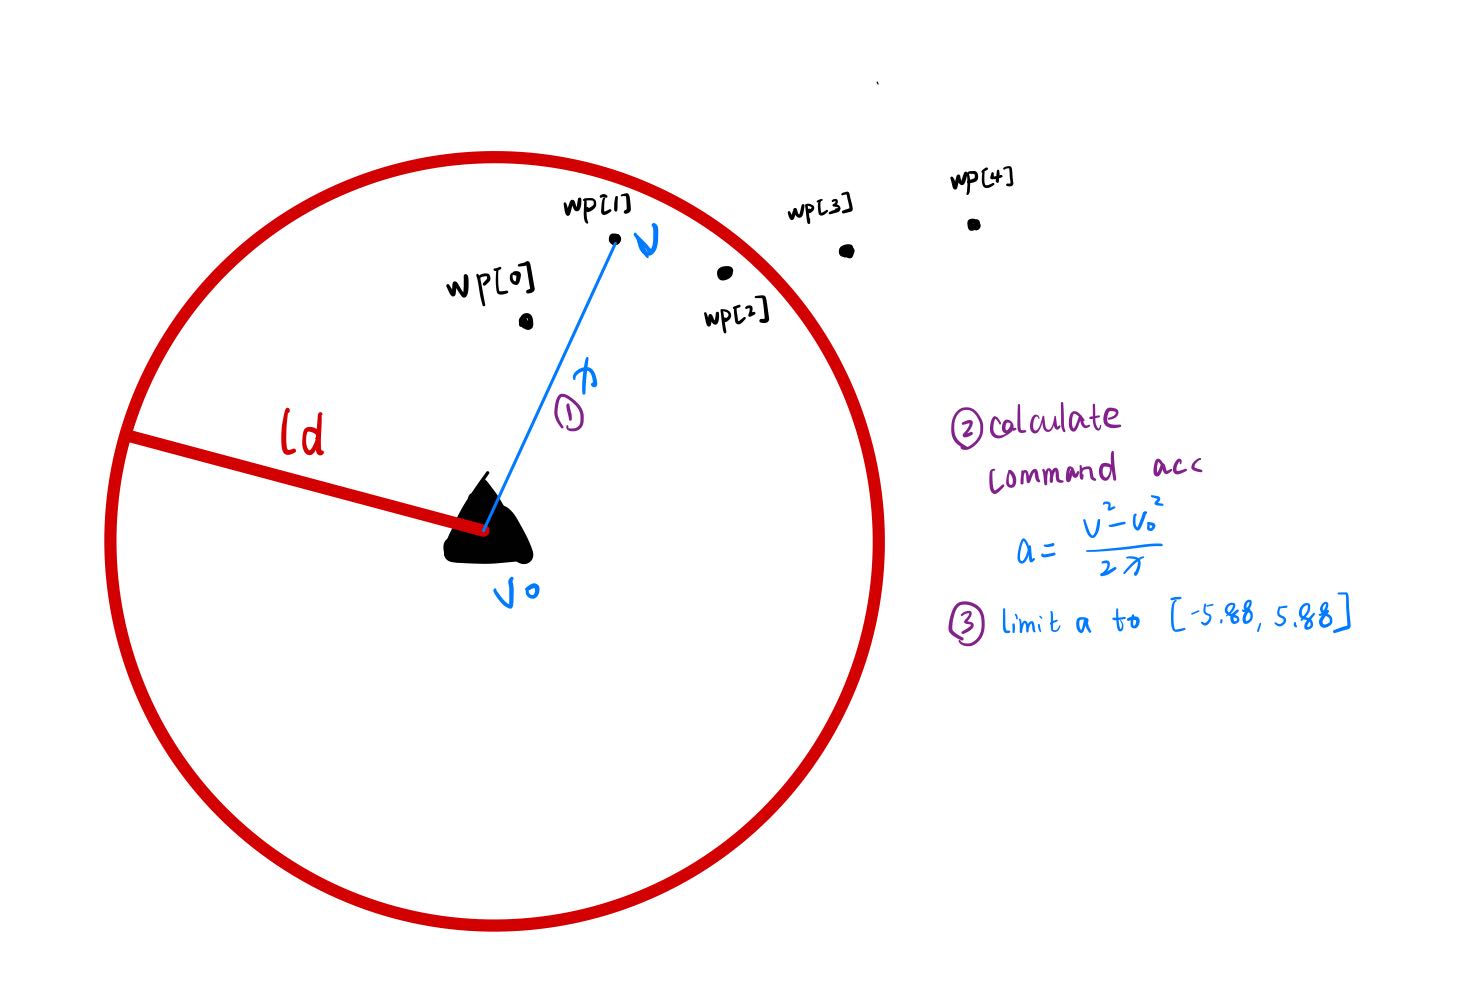 wp[4]
wp[3]
wp[1]
V
wp[0]
wp[2]
x
①
ld
② calculate
command acc
a = v² - v₀² / 2x
v₀
③ limit a to [-5.88, 5.88]